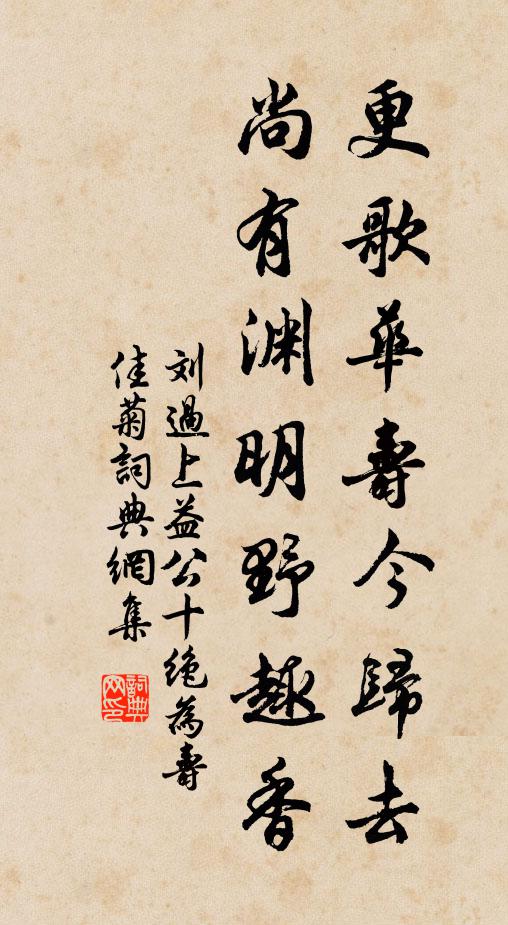 更歌華壽今歸去
尚有渊明野趣香
刘過上益公十绝為壽
佳菊詞典網集
詞典网印